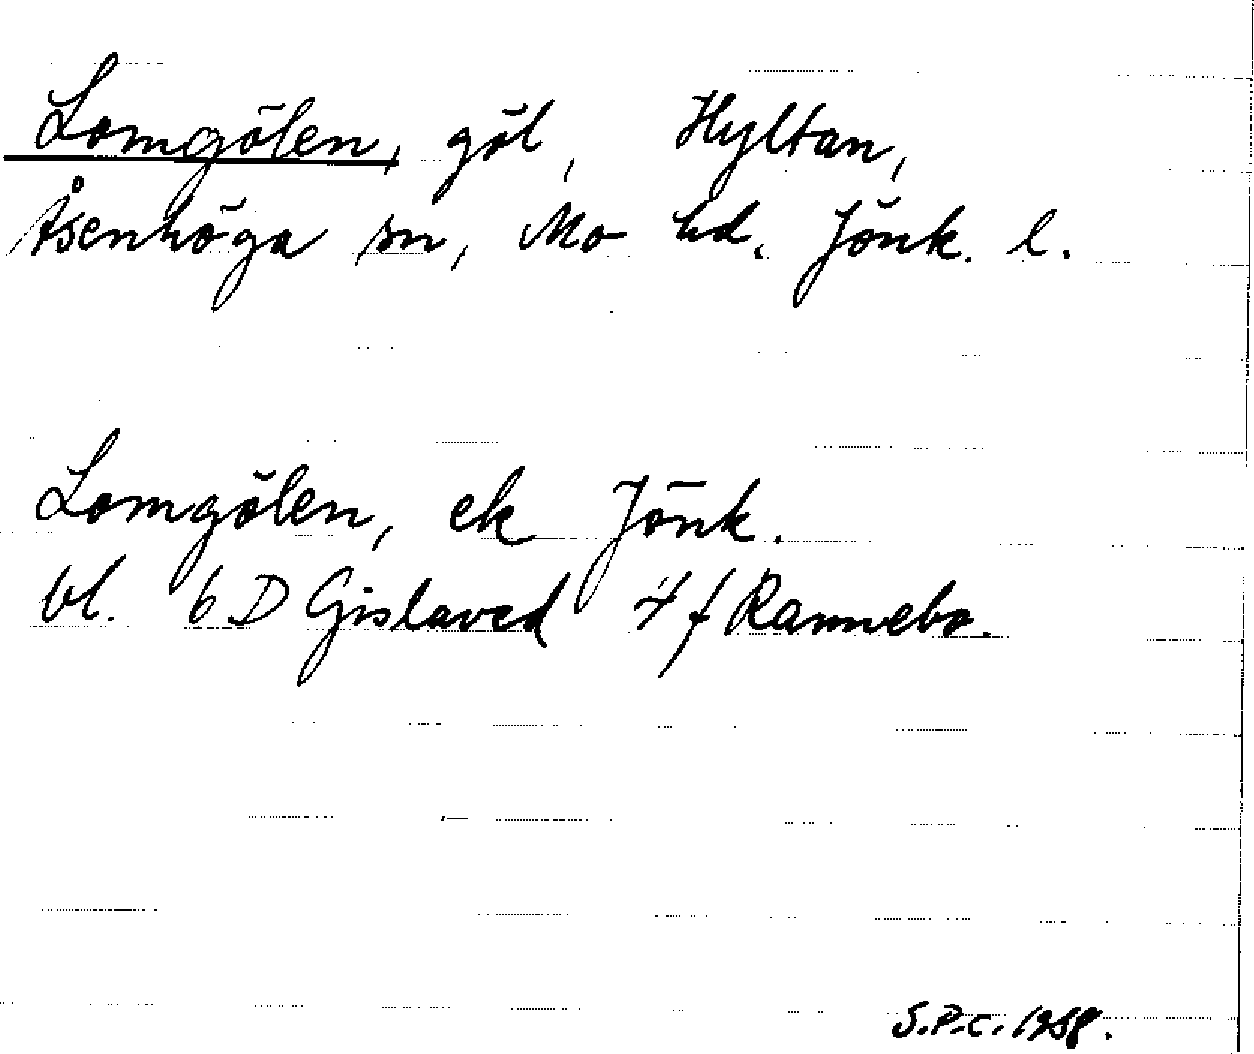 Lomgölen, göl, Hyltan,
Åsenhöga sn, Mo hd. Jönk. l.
Lomgölen, ek Jönk.
bl. 6 D Gislaved 4 f Rannebo.
S.P.C. 1958.